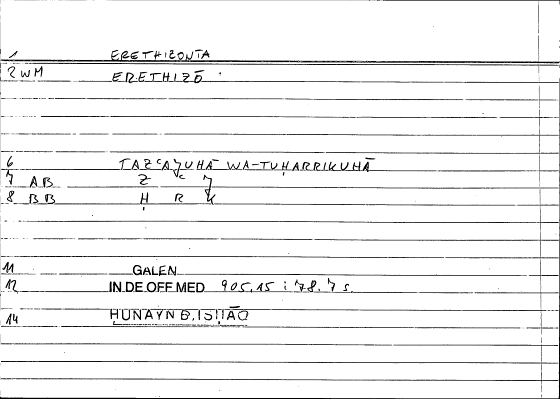 1 ERETHIZONTA
2 WM ERETHIZŌ
6 WA-TUḤARRIKUHĀ
7 AB Z ʿ J
8 BB Ḥ R K
11 GALEN
12 IN.DE OFF MED 905,15 : 78.7 s.
14 ḤUNAYN B.ISḤĀQ